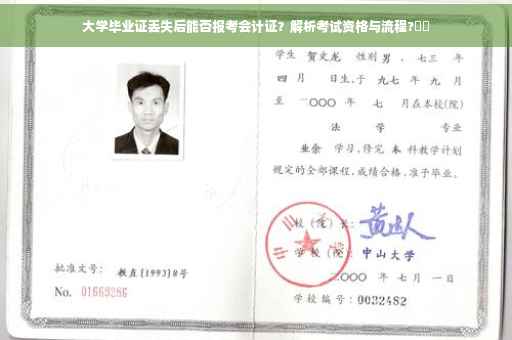 大学毕业证丢失后能否报考会计证？解析考试资格与流程?
学生 贺文龙 性别 男，七三 年
四 月 日生，于 九七 年 九 月
至 二〇〇〇 年 七 月在本校(院)
法 学 专业
业余 学习，修完 本 科教学计划
规定的全部课程，成绩合格，准予毕业。
校（院）长：
学 校（院）：中山大学
二〇〇〇 年 七 月 一 日
批准文号： 教直[1993]8号
No. 01669286
学校编号：0032482